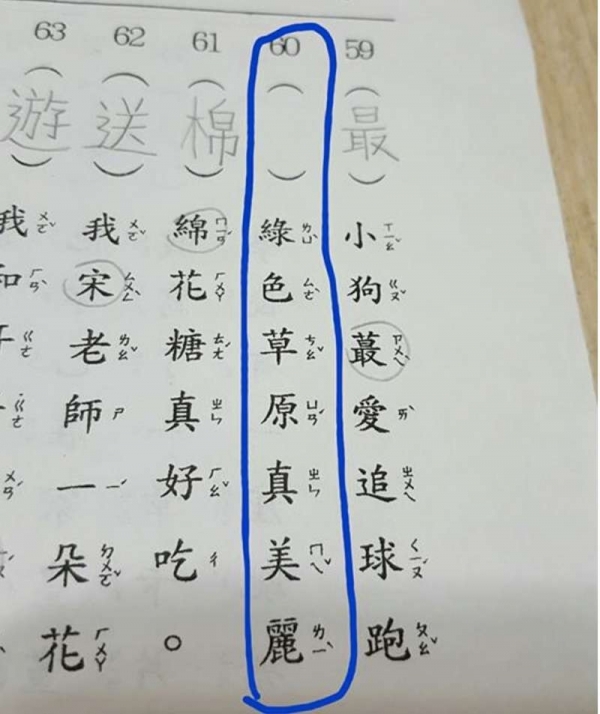 59（最）小ㄒㄧㄠˇ狗ㄍㄡˇ蕞ㄗㄨㄟˋ愛ㄞˋ追ㄓㄨㄟ球ㄑㄧㄡˊ跑ㄆㄠˇ
60（ ）綠ㄌㄩˋ色ㄙㄜˋ草ㄘㄠˇ原ㄩㄢˊ真ㄓㄣ美ㄇㄟˇ麗ㄌㄧˋ
61（棉）綿ㄇㄧㄢˊ花ㄏㄨㄚ糖ㄊㄤˊ真ㄓㄣ好ㄏㄠˇ吃ㄔ。
62（送）我ㄨㄛˇ宋ㄙㄨㄥˋ老ㄌㄠˇ師ㄕ一ㄧˋ朵ㄉㄨㄛˇ花ㄏㄨㄚ
63（遊）我ㄨㄛˇ和ㄏㄢˋ